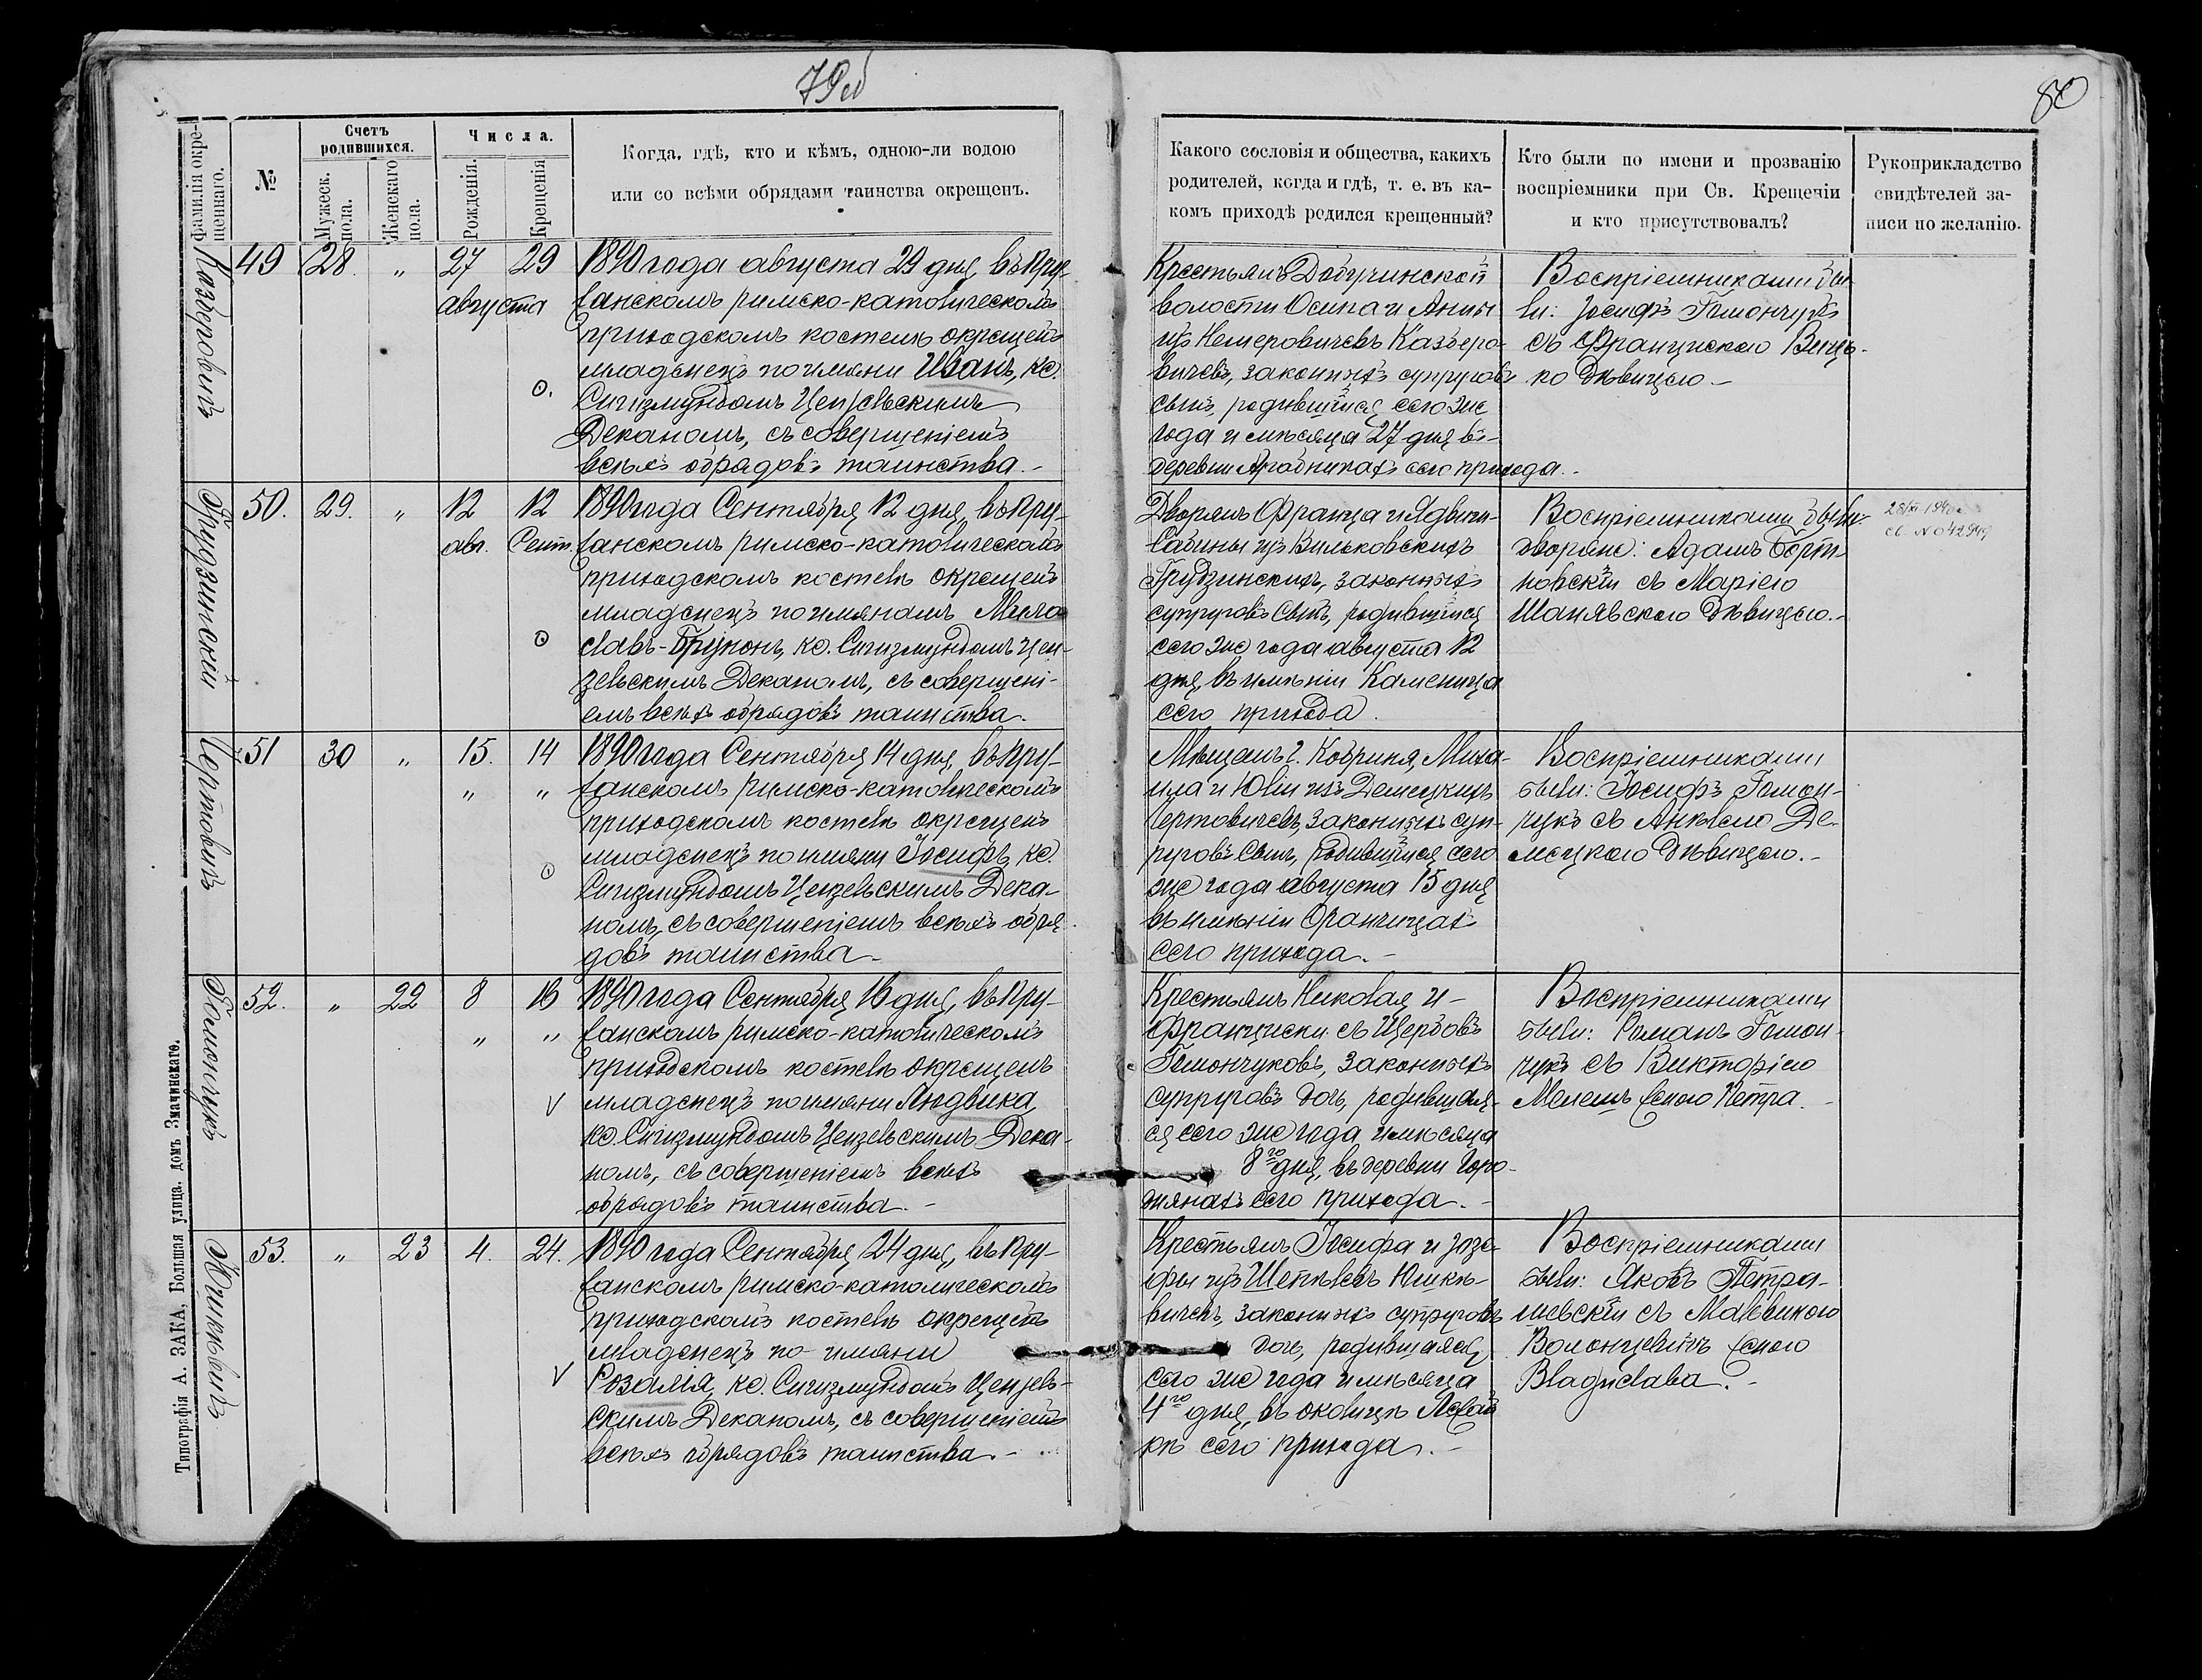 79об
80
Фамилія окре-
щеннаго.
№
Счетъ
родившихся.
Мужеск.
пола.
Женскаго
пола.
Числа.
Рожденія.
Крещенія
Когда, гдѣ, кто и кѣмъ, одною-ли водою
или со всѣми обрядами таинства окрещенъ.
Какого сословія и общества, какихъ
родителей, когда и гдѣ, т. е. въ ка-
комъ приходѣ родился крещенный?
Кто были по имени и прозванію
воспріемники при Св. Крещеніи
и кто присутствовалъ?
Рукоприкладство
свидѣтелей за-
писи по желанію.
Казберовичъ
49
28.
"
27
29
августа
1890 года августа 29 дня, въ Пру-
жанскомъ римско-католическомъ
приходскомъ костелѣ окрещенъ
младенецъ по имени Иванъ, кс.
Сигизмундомъ Цензевскимъ
Деканомъ, съ совершеніемъ
всѣхъ обрядовъ таинства.-
Крестьянъ Добучинской
волости Осипа и Анны
изъ Немеровичевъ Казберо-
вичевъ, законныхъ супруговъ
сынъ, родившійся сего же
года и мѣсяца 27 дня въ
деревни сего прихода.-
Воспріемниками бы-
ли: Іосифъ Гомончукъ
съ Францискою Венць-
ко дѣвицею.-
Грудзинскій
50.
29.
"
12
12
авг.
Сент.
1890 года Сентября 12 дня, въ Пру-
жанскомъ римско-католическомъ
приходскомъ костелѣ окрещенъ
младенецъ по имянамъ Мечи-
славъ-Брунонъ, кс. Сигизмундомъ Цен-
зевскимъ Деканомъ, съ совершені-
емъ всѣхъ обрядовъ таинства.
Дворянъ Франца и Ядвиги-
Сабины изъ Вильковскихъ
Грудзинскихъ, законныхъ
супруговъ сынъ, родившійся
сего же года августа 12
дня, въ имѣніи Каменица
сего прихода.
Воспріемниками были
дворяне: Адамъ Борт-
новскій съ Маріею
Шанявскою дѣвицею.-
Чертовичъ
51
30
"
15.
14
"
"
1890 года Сентября 14 дня, въ Пру-
жанскомъ римско-католическомъ
приходскомъ костелѣ окрещенъ
младенецъ по имени Іосифъ, кс.
Сигизмундомъ Цензевскимъ Дека-
номъ, съ совершеніемъ всѣхъ обря-
довъ таинства.-
Мѣщанъ г. Кобриня, Миха-
ила и Юліи изъ Демецкихъ
Чертовичевъ, законныхъ суп-
руговъ сынъ, родившійся сего
же года августа 15 дня
въ имѣніи Оранчицахъ
сего прихода.-
Воспріемниками
были: Іосифъ Гомон-
чукъ съ Анѣлею Де-
мецкою дѣвицею.-
Гомончукъ
52.
"
22
8
16
"
"
1890 года Сентября 16 дня, въ Пру-
жанскомъ римско-католическомъ
приходскомъ костелѣ окрещенъ
младенецъ по имени Людвика,
кс. Сигизмундомъ Цензевскимъ Дека-
номъ, съ совершеніемъ всѣхъ
обрядовъ таинства.-
Крестьянъ Николая и-
Франциски съ Щербовъ
Гомончуковъ, законныхъ
супруговъ дочь, родившая-
ся сего же года и мѣсяца
8го дня, въ деревни Горо-
жанахъ сего прихода.-
Воспріемниками
были: Романъ Гомон-
чукъ съ Викторіею
женою Петра.-
Юшкѣвичъ
53.
"
23
4.
24.
1890 года Сентября 24 дня, въ Пру-
жанскомъ римско-католическомъ
приходскомъ костелѣ окрещенъ
младенецъ по имени
Розалія, кс. Сигизмундомъ Цензев-
скимъ Деканомъ, съ совершеніемъ
всѣхъ обрядовъ таинства.-
Крестьянъ Іосифа и Юзе-
фы изъ Шепѣлевъ Юшкѣ-
вичевъ, законныхъ супруговъ
дочь, родившаяся
сего же года и мѣсяца
4го дня, въ околицѣ
сего прихода.-
Воспріемниками
были: Яковъ Петра-
шевскій съ Мальвиною
Волонцевичъ женою
Владислава.-
Типографія А. ЗАКА, Большая улица, домъ Змачинскаго.